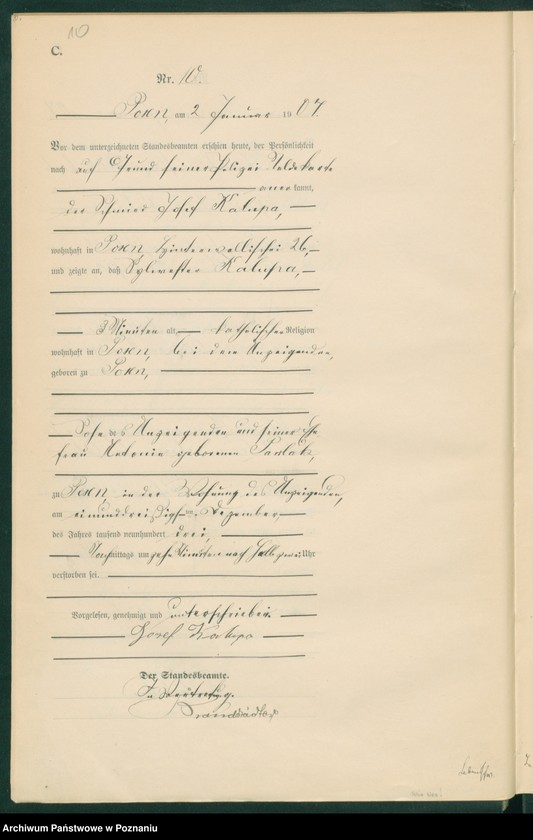 10
C.
Nr. 10.
Posen, am 2 Januar 1904.
Vor dem unterzeichneten Standesbeamten erschien heute, der Persönlichkeit
nach auf Grund seiner Polizei Meldekarte
anerkannt,
der Schmied Josef Kalupa,
wohnhaft in Posen 26,
und zeigte an, daß Sylvester Kalupa,
3 Minuten alt, katholischer Religion
wohnhaft in Posen, bei dem Anzeigenden,
geboren zu Posen,
Sohn des Anzeigenden und seiner Ehe
frau Antonie geborenen
zu Posen, in der Wohnung des Anzeigenden,
am einunddreißigsten Dezember
des Jahres tausend neunhundert drei,
mittags um zehn Minuten nach halb Uhr
verstorben sei.
Vorgelesen, genehmigt und unterschrieben.
Josef Kalupa
Der Standesbeamte.
In Vertretung.
Archiwum Państwowe w Poznaniu